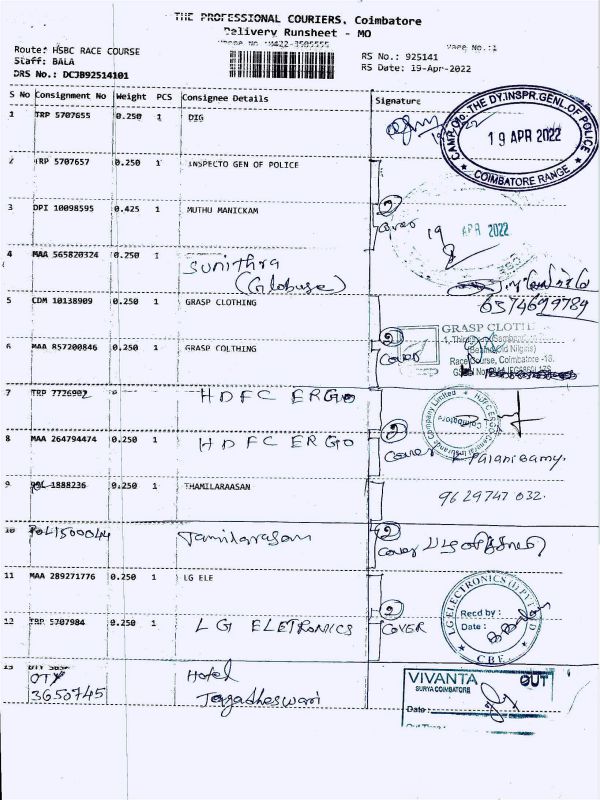 THE PROFESSIONAL COURIERS, Coimbatore
Delivery Runsheet - MO
Phone No :0422-3505555
Page No.:1
Route: HSBC RACE COURSE
Staff: BALA
DRS No.: DCJB92514101
RS No.: 925141
RS Date: 19-Apr-2022
S No Consignment No Weight PCS Consignee Details Signature
1 TRP 5707655 0.250 1 DIG
CAMP O/o. THE DY.INSPR.GENL.OF POLICE
19 APR 2022
COIMBATORE RANGE
2 TRP 5707657 0.250 1 INSPECTO GEN OF POLICE
3 DPI 10098595 0.425 1 MUTHU MANICKAM
2 cover
19 APR 2022
4 MAA 565820324 0.250 1 Sunithra
(Globuse)
6374699789
5 CDM 10138909 0.250 1 GRASP CLOTHING
GRASP CLOTHI
6 MAA 857200846 0.250 1 GRASP COLTHING
2 cover
Race Course, Coimbatore -18.
7 TRP 7726902 HDFC ERGO
8 MAA 264794474 0.250 1 HDFC ERGO
2 cover
HDFC ERGO General Insurance Company Limited
Coimbatore
Palanisamy.
9 POL 1888236 0.250 1 THAMILARAASAN
9629747 032.
10 POL1500044 Tamilarasan
2 cover
11 MAA 289271776 0.250 1 LG ELE
LG ELECTRONICS (I) PVT LTD
Recd by :
Date :
CBE.
12 TRP 5707984 0.250 1 LG ELETRONICS
2 COVER
13 OTY
3650745
Hotel
VIVANTA OUT
SURYA COIMBATORE
Date :
Out Time :